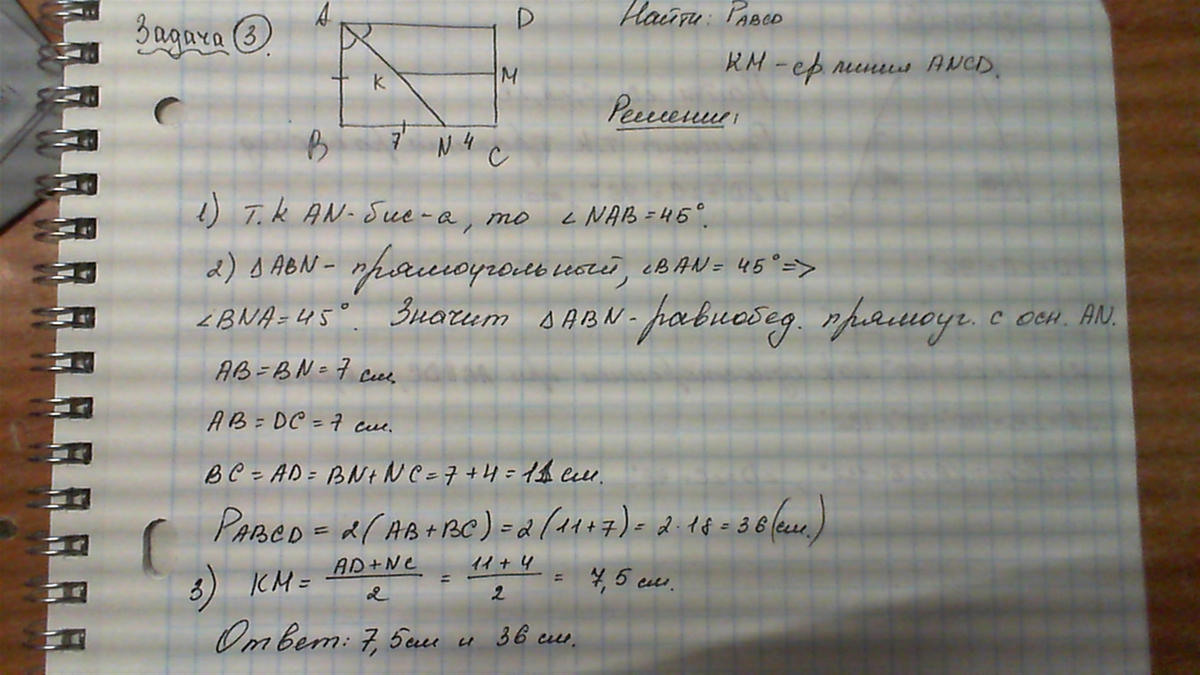 Задача 3.
A D
K M
B 7 N 4 C
Найти: PABCD
KM - ср. линия ANCD.
Решение:
1) Т.к AN - бис-а, то ∠NAB = 45°.
2) ΔABN - прямоугольный, ∠BAN = 45° =>
∠BNA = 45°. Значит ΔABN - равнобед. прямоуг. с осн. AN.
AB = BN = 7 см.
AB = DC = 7 см.
BC = AD = BN + NC = 7 + 4 = 11 см.
PABCD = 2(AB + BC) = 2(11 + 7) = 2 · 18 = 36 (см.)
3) KM = (AD + NC)/2 = (11 + 4)/2 = 7,5 см.
Ответ: 7,5 см и 36 см.